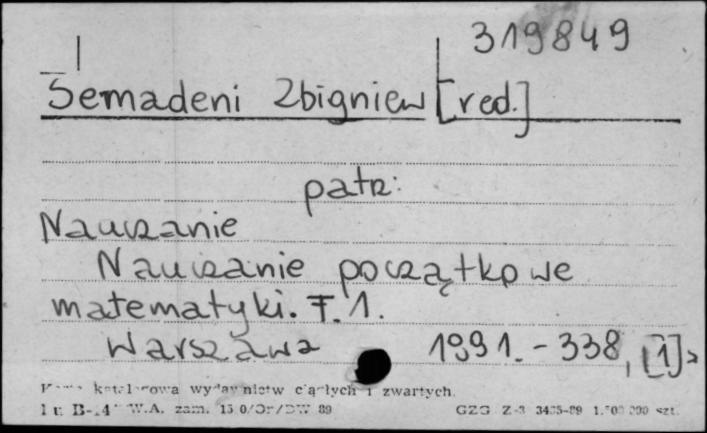 319849
Semadeni Zbigniew [red.]
patrz:
Nauczanie
Nauczanie początkowe
matematyki. T. 1.
Warszawa 1991. - 338, [1]
Karta katalogowa wydawnictw ciągłych i zwartych.
W.A. zam. GZG Z-3 3435-89 szt.